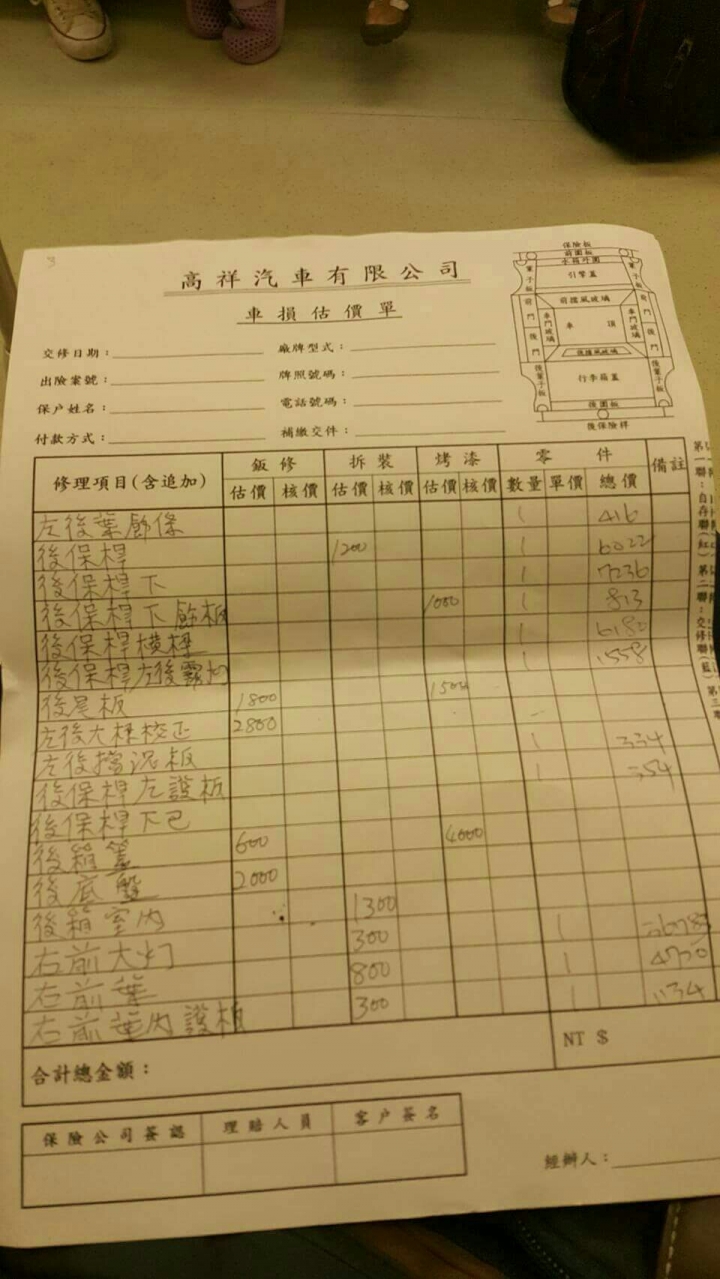 高祥汽車有限公司
車損估價單
交修日期：
廠牌型式：
出險案號：
牌照號碼：
保户姓名：
電話號碼：
付款方式：
補繳交件：
保險板
前圍板
水箱外圍
葉子板 引擎蓋 葉子板
前門 前擋風玻璃 前門
車門玻璃 車頂 車門玻璃
後門 後擋風玻璃 後門
後葉子板 行李箱蓋 後葉子板
後圍板
後保險桿
修理項目(含追加) 鈑修 拆裝 烤漆 零件 備註
估價 核價 估價 核價 估價 核價 數量 單價 總價
左後葉飾條 1 416
後保桿 1200 1 6022
後保桿下 1 7236
後保桿下飾板 1000 1 813
後保桿橫樑 1 6180
後保桿左後霧灯 1 1558
後尾板 1800 1500
左後大樑校正 2800
左後擋泥板 1 334
後保桿左護板 1 354
後保桿下巴
後箱蓋 600 4000
後底盤 2000
後箱室內 1300
右前大灯 300 1
右前葉 800 1
右前葉內護板 300 1
合計總金額：
NT $
保險公司簽認 理賠人員 客户簽名
經辦人：